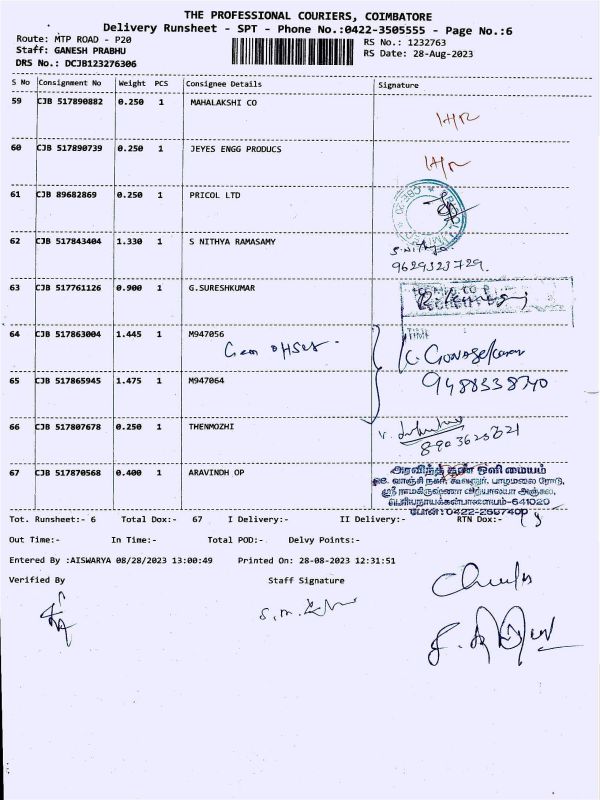 THE PROFESSIONAL COURIERS, COIMBATORE
Delivery Runsheet - SPT - Phone No.:0422-3505555 - Page No.:6
Route: MTP ROAD - P20
RS No.: 1232763
Staff: GANESH PRABHU
RS Date: 28-Aug-2023
DRS No.: DCJB123276306
S No Consignment No Weight PCS Consignee Details Signature
59 CJB 517890882 0.250 1 MAHALAKSHI CO
60 CJB 517890739 0.250 1 JEYES ENGG PRODUCS
61 CJB 89682869 0.250 1 PRICOL LTD
62 CJB 517843404 1.330 1 S NITHYA RAMASAMY
S.Nithya
9629323729.
63 CJB 517761126 0.900 1 G.SURESHKUMAR
64 CJB 517863004 1.445 1 M947056
TIME
65 CJB 517865945 1.475 1 M947064
9488338740
66 CJB 517807678 0.250 1 THENMOZHI
8903625821
67 CJB 517870568 0.400 1 ARAVINDH OP
அரவிந்த் கண் ஒளி மையம்
வாஞ்சி நகர், பாழமலை ரோடு,
ஸ்ரீ ராமகிருஷ்ணா வித்யாலயா அஞ்சல்,
பெரியநாயக்கன்பாளையம்-641020
போன்:0422-
Tot. Runsheet:- 6 Total Dox:- 67 I Delivery:- II Delivery:- RTN Dox:-
Out Time:- In Time:- Total POD:- Delvy Points:-
Entered By :AISWARYA 08/28/2023 13:00:49 Printed On: 28-08-2023 12:31:51
Verified By Staff Signature